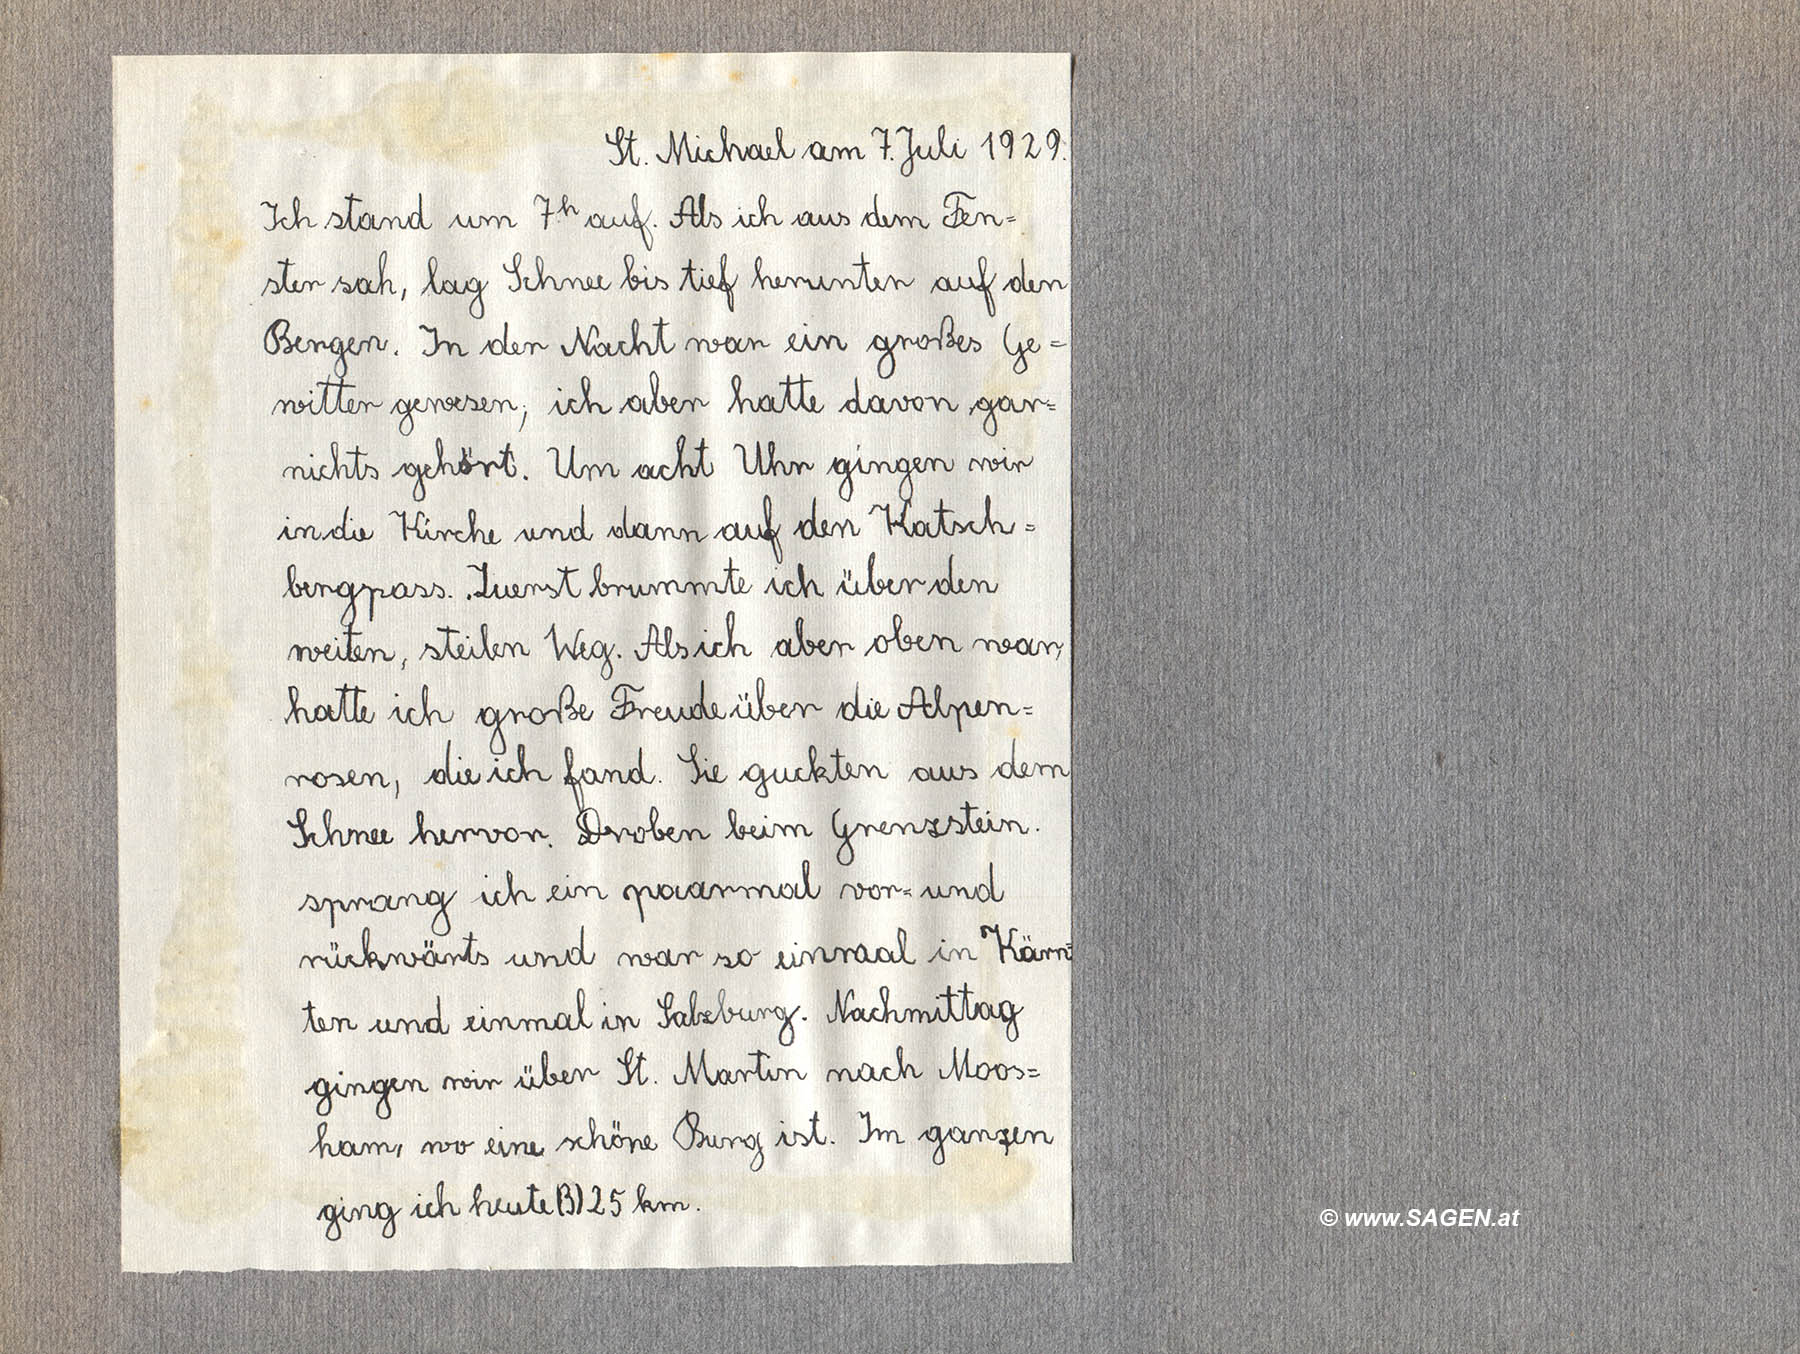 St. Michael am 7. Juli 1929.
Ich stand um 7h auf. Als ich aus dem Fen=
ster sah, lag Schnee bis tief herunter auf den
Bergen. In der Nacht war ein großes Ge=
witter gewesen; ich aber hatte davon gar=
nichts gehört. Um acht Uhr gingen wir
in die Kirche und dann auf den Katsch=
bergpass. Zuerst brummte ich über den
weiten, steilen Weg. Als ich aber oben war,
hatte ich große Freude über die Alpen=
rosen, die ich fand. Sie guckten aus dem
Schnee hervor. Droben beim Grenzstein.
sprang ich ein paarmal vor= und
rückwärts und war so einmal in Kärn=
ten und einmal in Salzburg. Nachmittag
gingen wir über St. Martin nach Moos=
ham, wo eine schöne Burg ist. Im ganzen
ging ich heute (3) 25 km.
© www.SAGEN.at